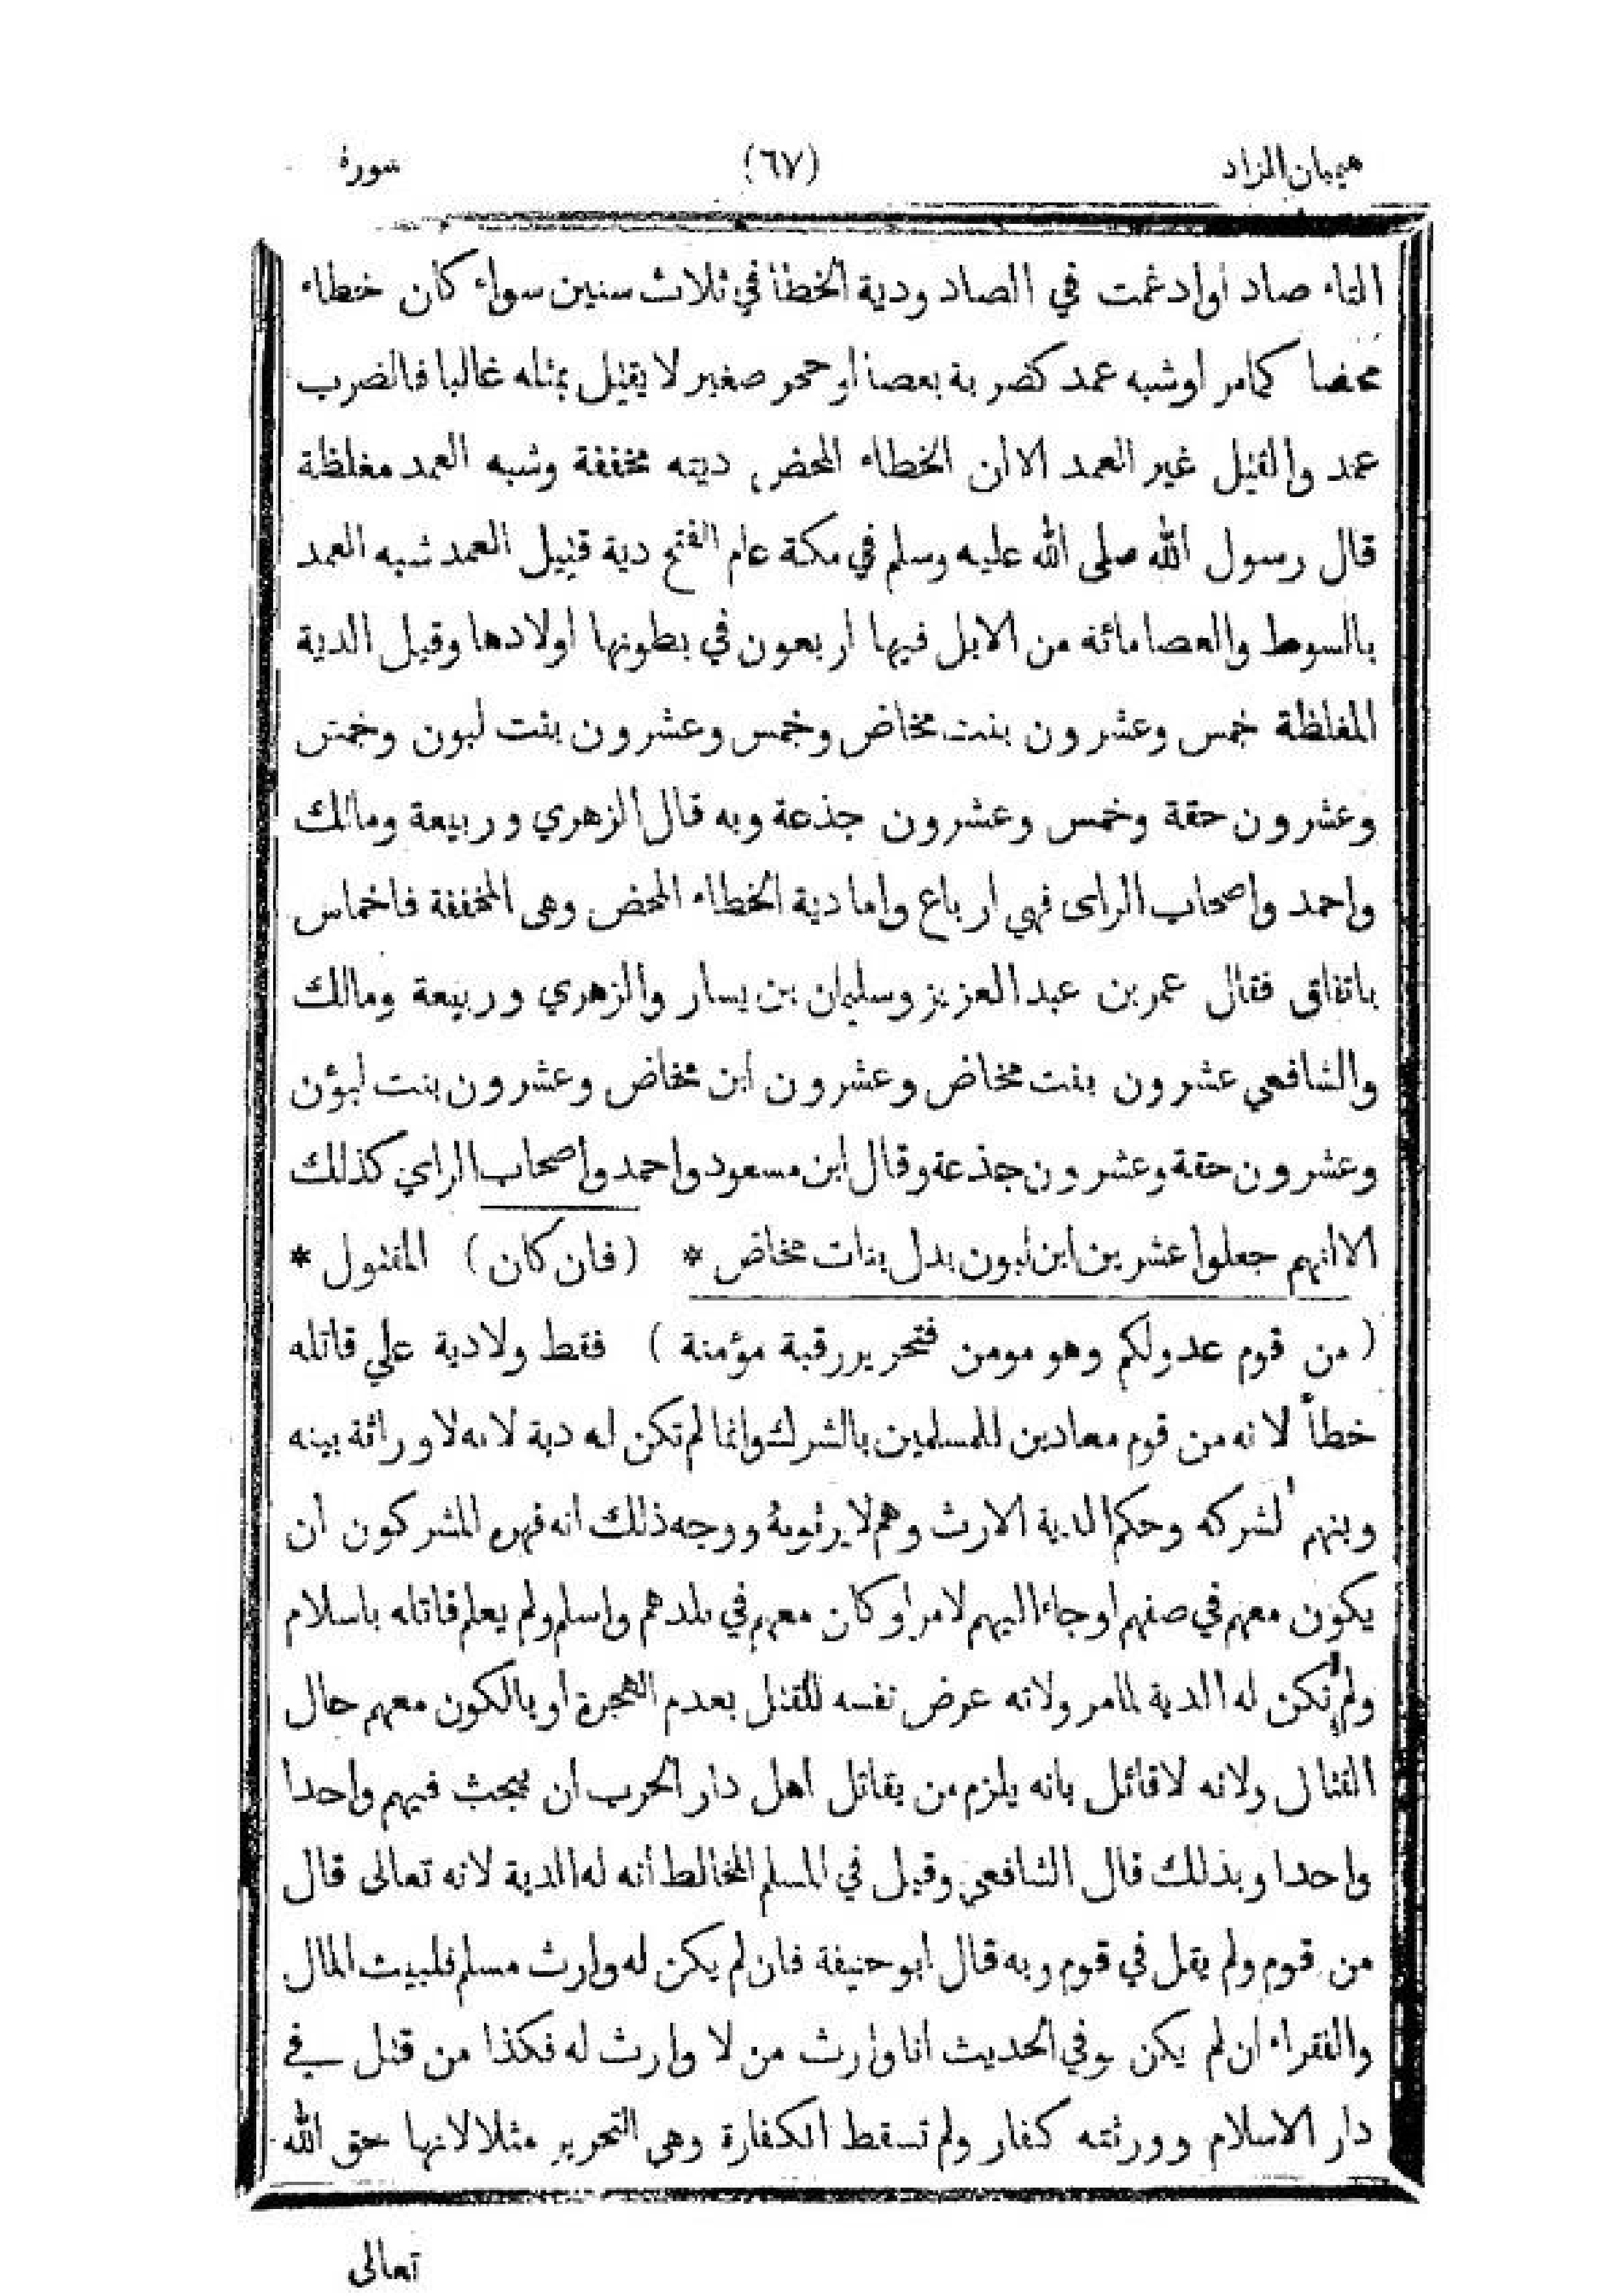 هيميان الزاد (٦٧) سورة
التاء صاد أوادغمت في الصاد ودية الخطأ في ثلاث سنين سواء كان خطاء
محضا كمامر اوشبه عمد كضربة بعصا او حجر صغير لا يقتل بمثله غالبا فالضرب
عمد والقتل غير العمد الا ان الخطاء المحض ديته مخففة وشبه العمد مغلظة
قال رسول الله صلى الله عليه وسلم في مكة عام الفتح دية قتيل العمد شبه العمد
بالسوط والعصا مائة من الابل فيها اربعون في بطونها اولادها وقيل الدية
المغلظة خمس وعشرون بنت مخاض وخمس وعشرون بنت لبون وخمس
وعشرون حقة وخمس وعشرون جذعة وبه قال الزهري وربيعة ومالك
واحمد واصحاب الراى فهي ارباع واما دية الخطاء المحض وهى المخففة فاخماس
باتفاق فقال عمر بن عبد العزيز وسليمان بن يسار والزهري وربيعة ومالك
والشافعي عشرون بنت مخاض وعشرون ابن مخاض وعشرون بنت لبون
وعشرون حقة وعشرون جذعة وقال ابن مسعود واحمد وأصحاب الراي كذلك
الا انهم جعلوا عشرين ابن لبون بدل بنات مخاض * (فان كان) المقتول *
(من قوم عدو لكم وهو مومن فتحرير رقبة مؤمنة) فقط ولا دية علي قاتله
خطأ لانه من قوم معادين للمسلمين بالشرك وانما لم تكن له دية لانه لا وراثة بينه
وبينهم لشركه وحكم الدية الارث وهم لا يرثونه ووجه ذلك انه قهره المشركون ان
يكون معهم في صفهم او جاء اليهم لامر او كان معهم في بلدهم واسلم ولم يعلم قاتله باسلام
ولم تكن له الدية لمامر ولانه عرض نفسه للقتل بعدم الهجرة او بالكون معهم حال
القتال ولانه لا قائل بانه يلزم من يقاتل اهل دار الحرب ان يبحث فيهم واحدا
واحدا وبذلك قال الشافعي وقيل في المسلم المخالط أنه له الدية لانه تعالى قال
من قوم ولم يقل في قوم وبه قال ابو حنيفة فان لم يكن له وارث مسلم فلبيت المال
والفقراء ان لم يكن وفي الحديث انا وارث من لا وارث له فكذا من قتل في
دار الاسلام وورثته كفار ولم تسقط الكفارة وهى التحرير مثلا لانها حق الله
تعالى